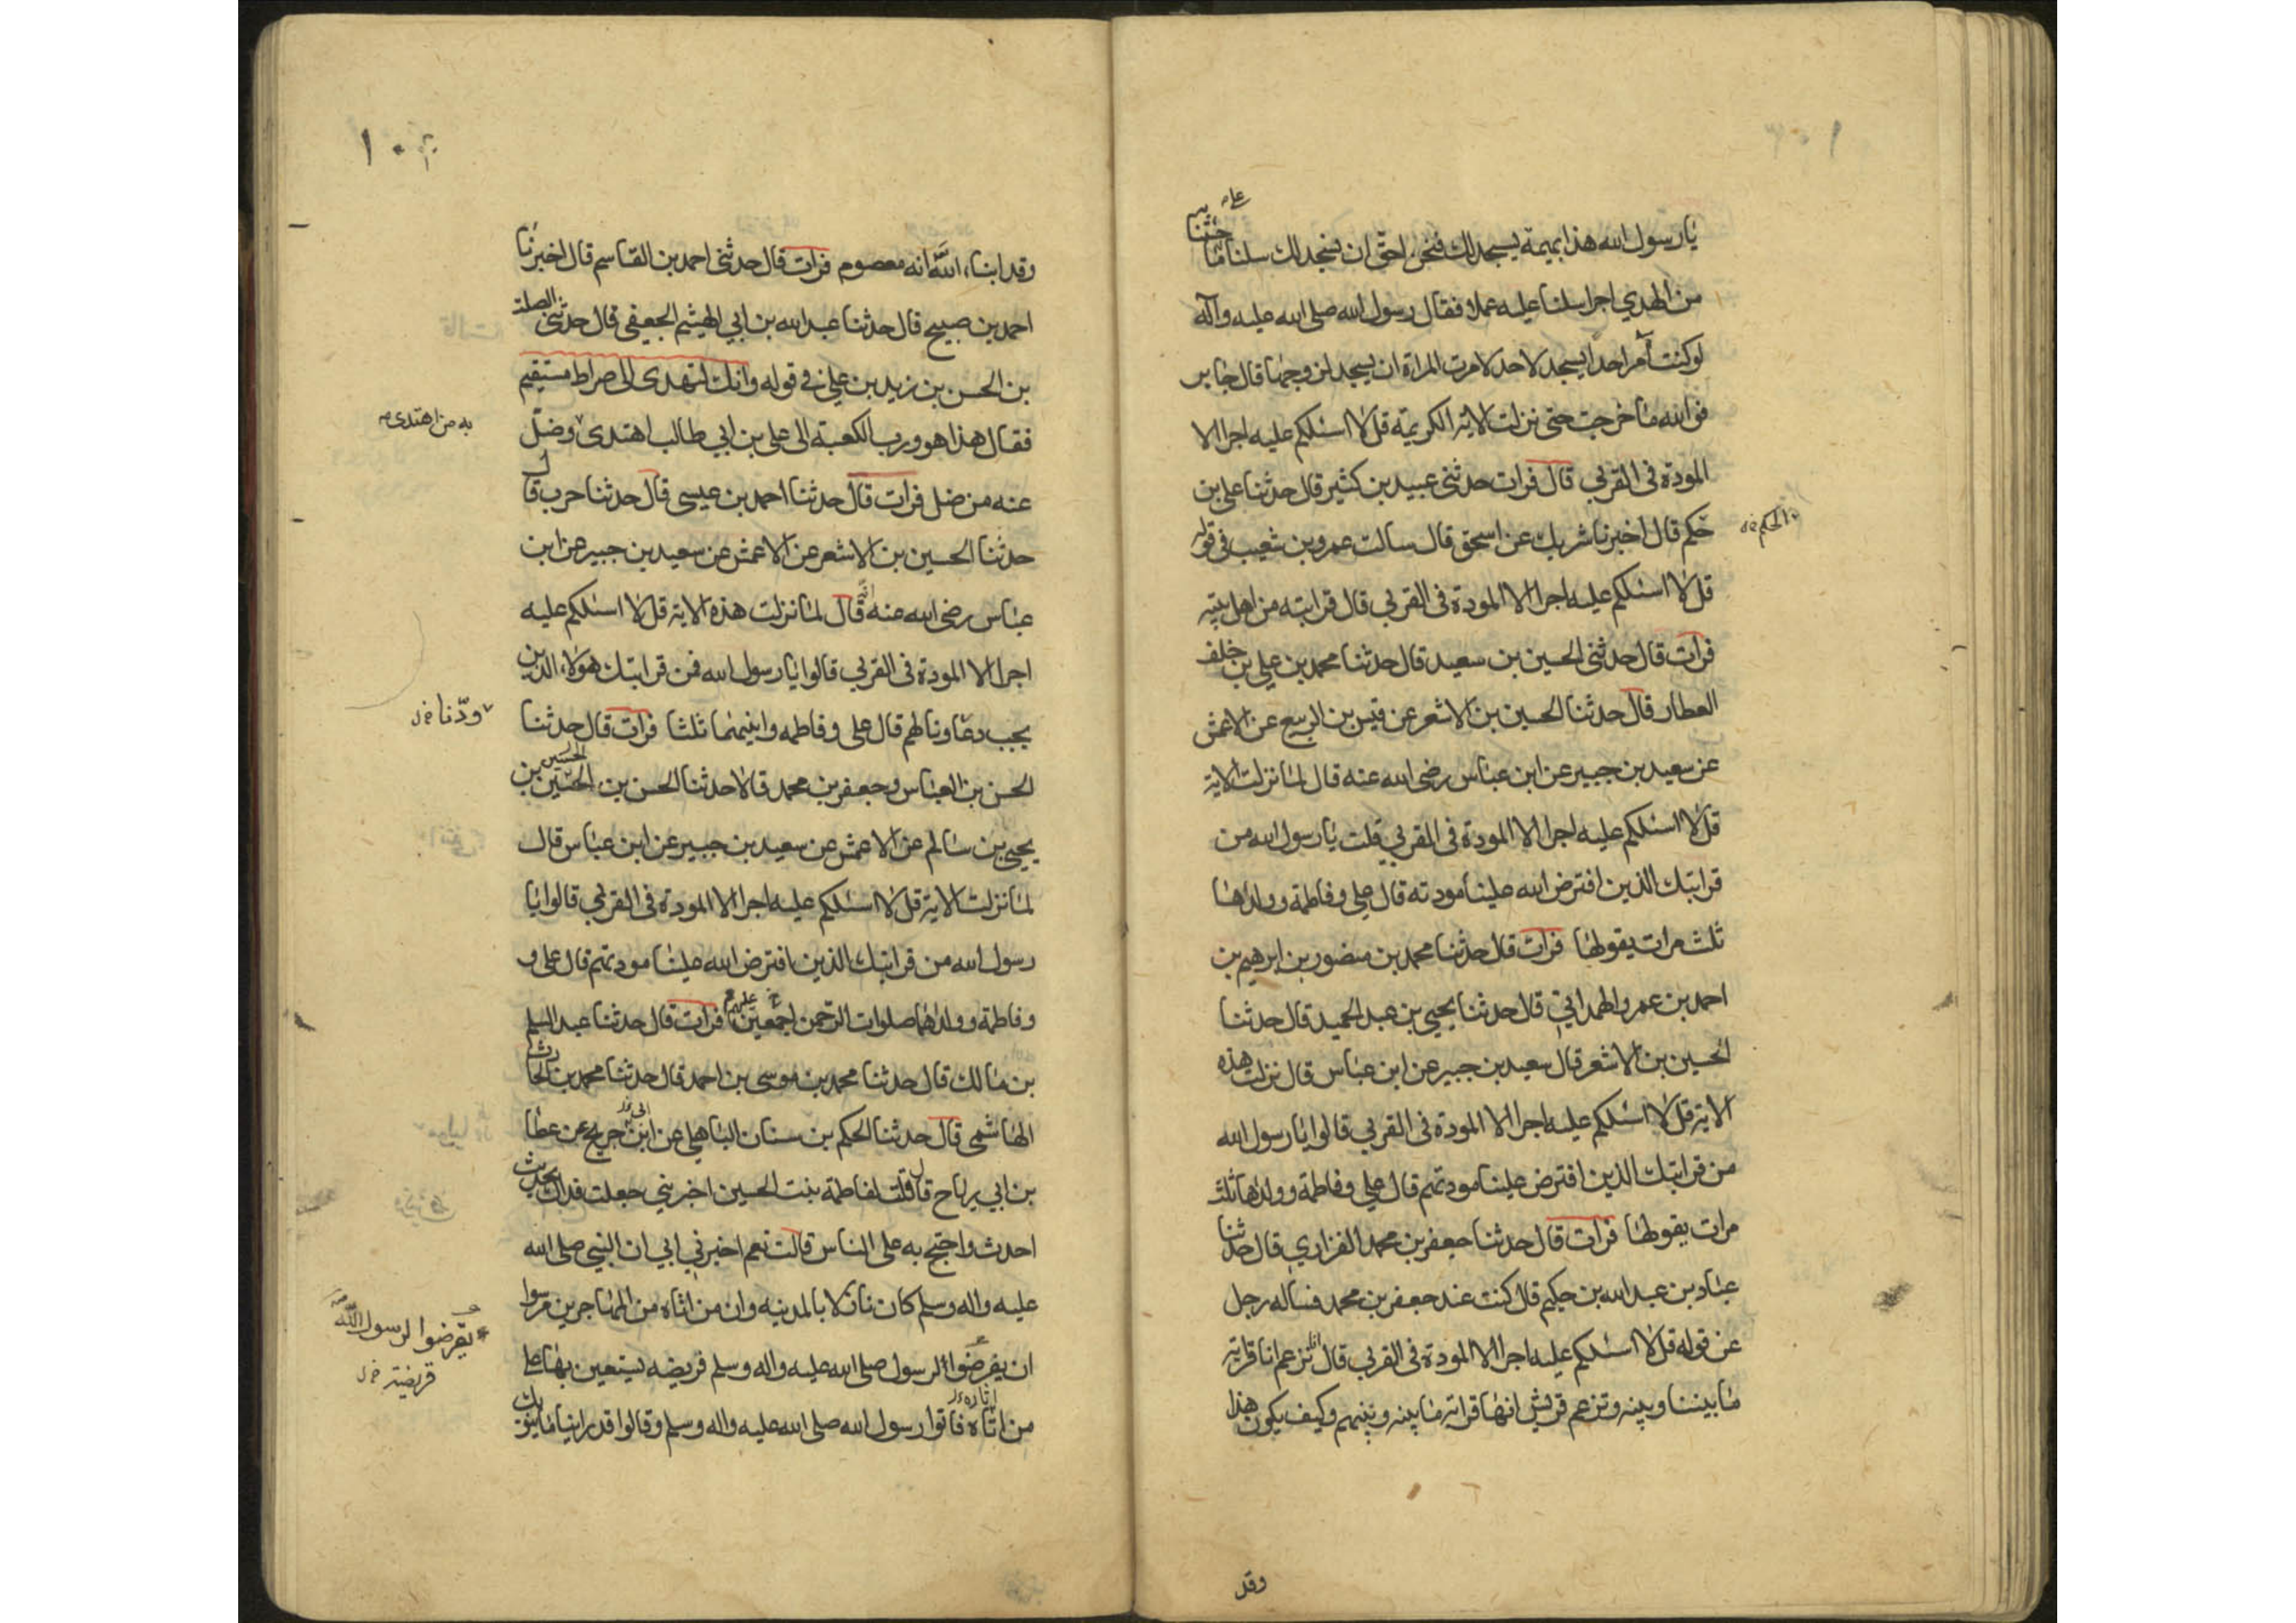 يا رسول الله هذا بهيمة يسجد لك فنحن احق ان نسجد لك سلنا ما جئتنا
من الهدي اجرا سلنا عليه عملا فقال رسول الله صلى الله عليه وآله
لو كنت آمر احدا يسجد لاحد لامرت المراة ان يسجد لزوجها قال جابر
فوالله ما خرجت حتى نزلت الاية الكريمة قل لا اسئلكم عليه اجرا الا
المودة فى القربى قال فرات حدثنى عبيد بن كثير قال حدثنا على بن
حكم قال اخبرنا شريك عن اسحق قال سالت عمرو بن شعيب فى قوله
الحكم
قل لا اسئلكم عليه اجرا الا المودة فى القربى قال قرابته من اهل بيته
فرات قال حدثنى الحسين بن سعيد قال حدثنا محمد بن على بن خلف
العطار قال حدثنا الحسين بن الاشعر عن قيس بن الربيع عن الاعمش
عن سعيد بن جبير عن ابن عباس رضى الله عنه قال لما نزلت الاية
قل لا اسئلكم عليه اجرا الا المودة فى القربى قلت يا رسول الله من
قرابتك الذين افترض الله علينا مودته قال على وفاطمة وولداها
ثلث مرات يقولها فرات قال حدثنا محمد بن منصور بن ابرهيم بن
احمد بن عمرو الهمداني قال حدثنا يحيى بن عبد الحميد قال حدثنا
الحسين بن الاشعر قال سعيد بن جبير عن ابن عباس قال نزلت هذه
الاية قل لا اسئلكم عليه اجرا الا المودة فى القربى قالوا يا رسول الله
من قرابتك الذين افترض علينا مودتهم قال على وفاطمة وولداها ثلث
مرات يقولها فرات قال حدثنا جعفر بن محمد الفزاري قال حدثنا
عباد بن عبد الله بن حكيم قال كنت عند جعفر بن محمد فساله رجل
عن قوله قل لا اسئلكم عليه اجرا الا المودة فى القربى قال انا نزعم انا قرابة
ما بيننا وبينه وتزعم قريش انها قرابة ما بينه وبينهم وكيف يكون هذا
وقد
١٠٣
وقد انباء الله انه معصوم فرات قال حدثنى احمد بن القاسم قال اخبرنا
احمد بن صبيح قال حدثنا عبد الله بن ابي الهيثم الجعفى قال حدثنى الصلت
بن الحسن بن زيد بن على فى قوله وانك لتهدى الى صراط مستقيم
فقال هذا هو ورب الكعبة الى على بن ابي طالب اهتدى وضل
به من اهتدى
عنه من ضل فرات قال حدثنا احمد بن عيسى قال حدثنا حرب قال
حدثنا الحسين بن الاشعر عن الاعمش عن سعيد بن جبير عن ابن
عباس رضى الله عنه انه قال لما نزلت هذه الاية قل لا اسئلكم عليه
اجرا الا المودة فى القربى قالوا يا رسول الله فمن قرابتك هولاء الذين
يجب دعاونا لهم قال على وفاطمه وابنيهما ثلثا فرات قال حدثنا
ودّنا
الحسن بن العباس وجعفر بن محمد قالا حدثنا الحسن بن الحسين بن
يحيى بن سالم عن الاعمش عن سعيد بن جبير عن ابن عباس قال
لما نزلت الاية قل لا اسئلكم عليه اجرا الا المودة فى القربى قالوا يا
رسول الله من قرابتك الذين افترض الله علينا مودتهم قال على و
وفاطمة وولداهما صلوات الرحمن عليهم اجمعين فرات قال حدثنا عبد السلم
بن مالك قال حدثنا محمد بن موسى بن احمد قال حدثنا محمد بن الحارث
الهاشمى قال حدثنا الحكم بن سنان الباهلى عن ابن جريج عن عطا
بن ابي برباح قال قلت لفاطمة بنت الحسين اخبريني جعلت فداك بحديث
احدث واحتج به على الناس قالت نعم اخبرني ابي ان النبى صلى الله
عليه واله وسلم كان نازلا بالمدينه وان من اتاه من المهاجرين مرسوا
ان يفرضوا لرسول صلى الله عليه واله وسلم فريضه يستعين بها على
يفرضوا لرسول الله
فريضة
من اتاه فاتوا رسول الله صلى الله عليه واله وسلم وقالوا قد راينا ما ينوبك